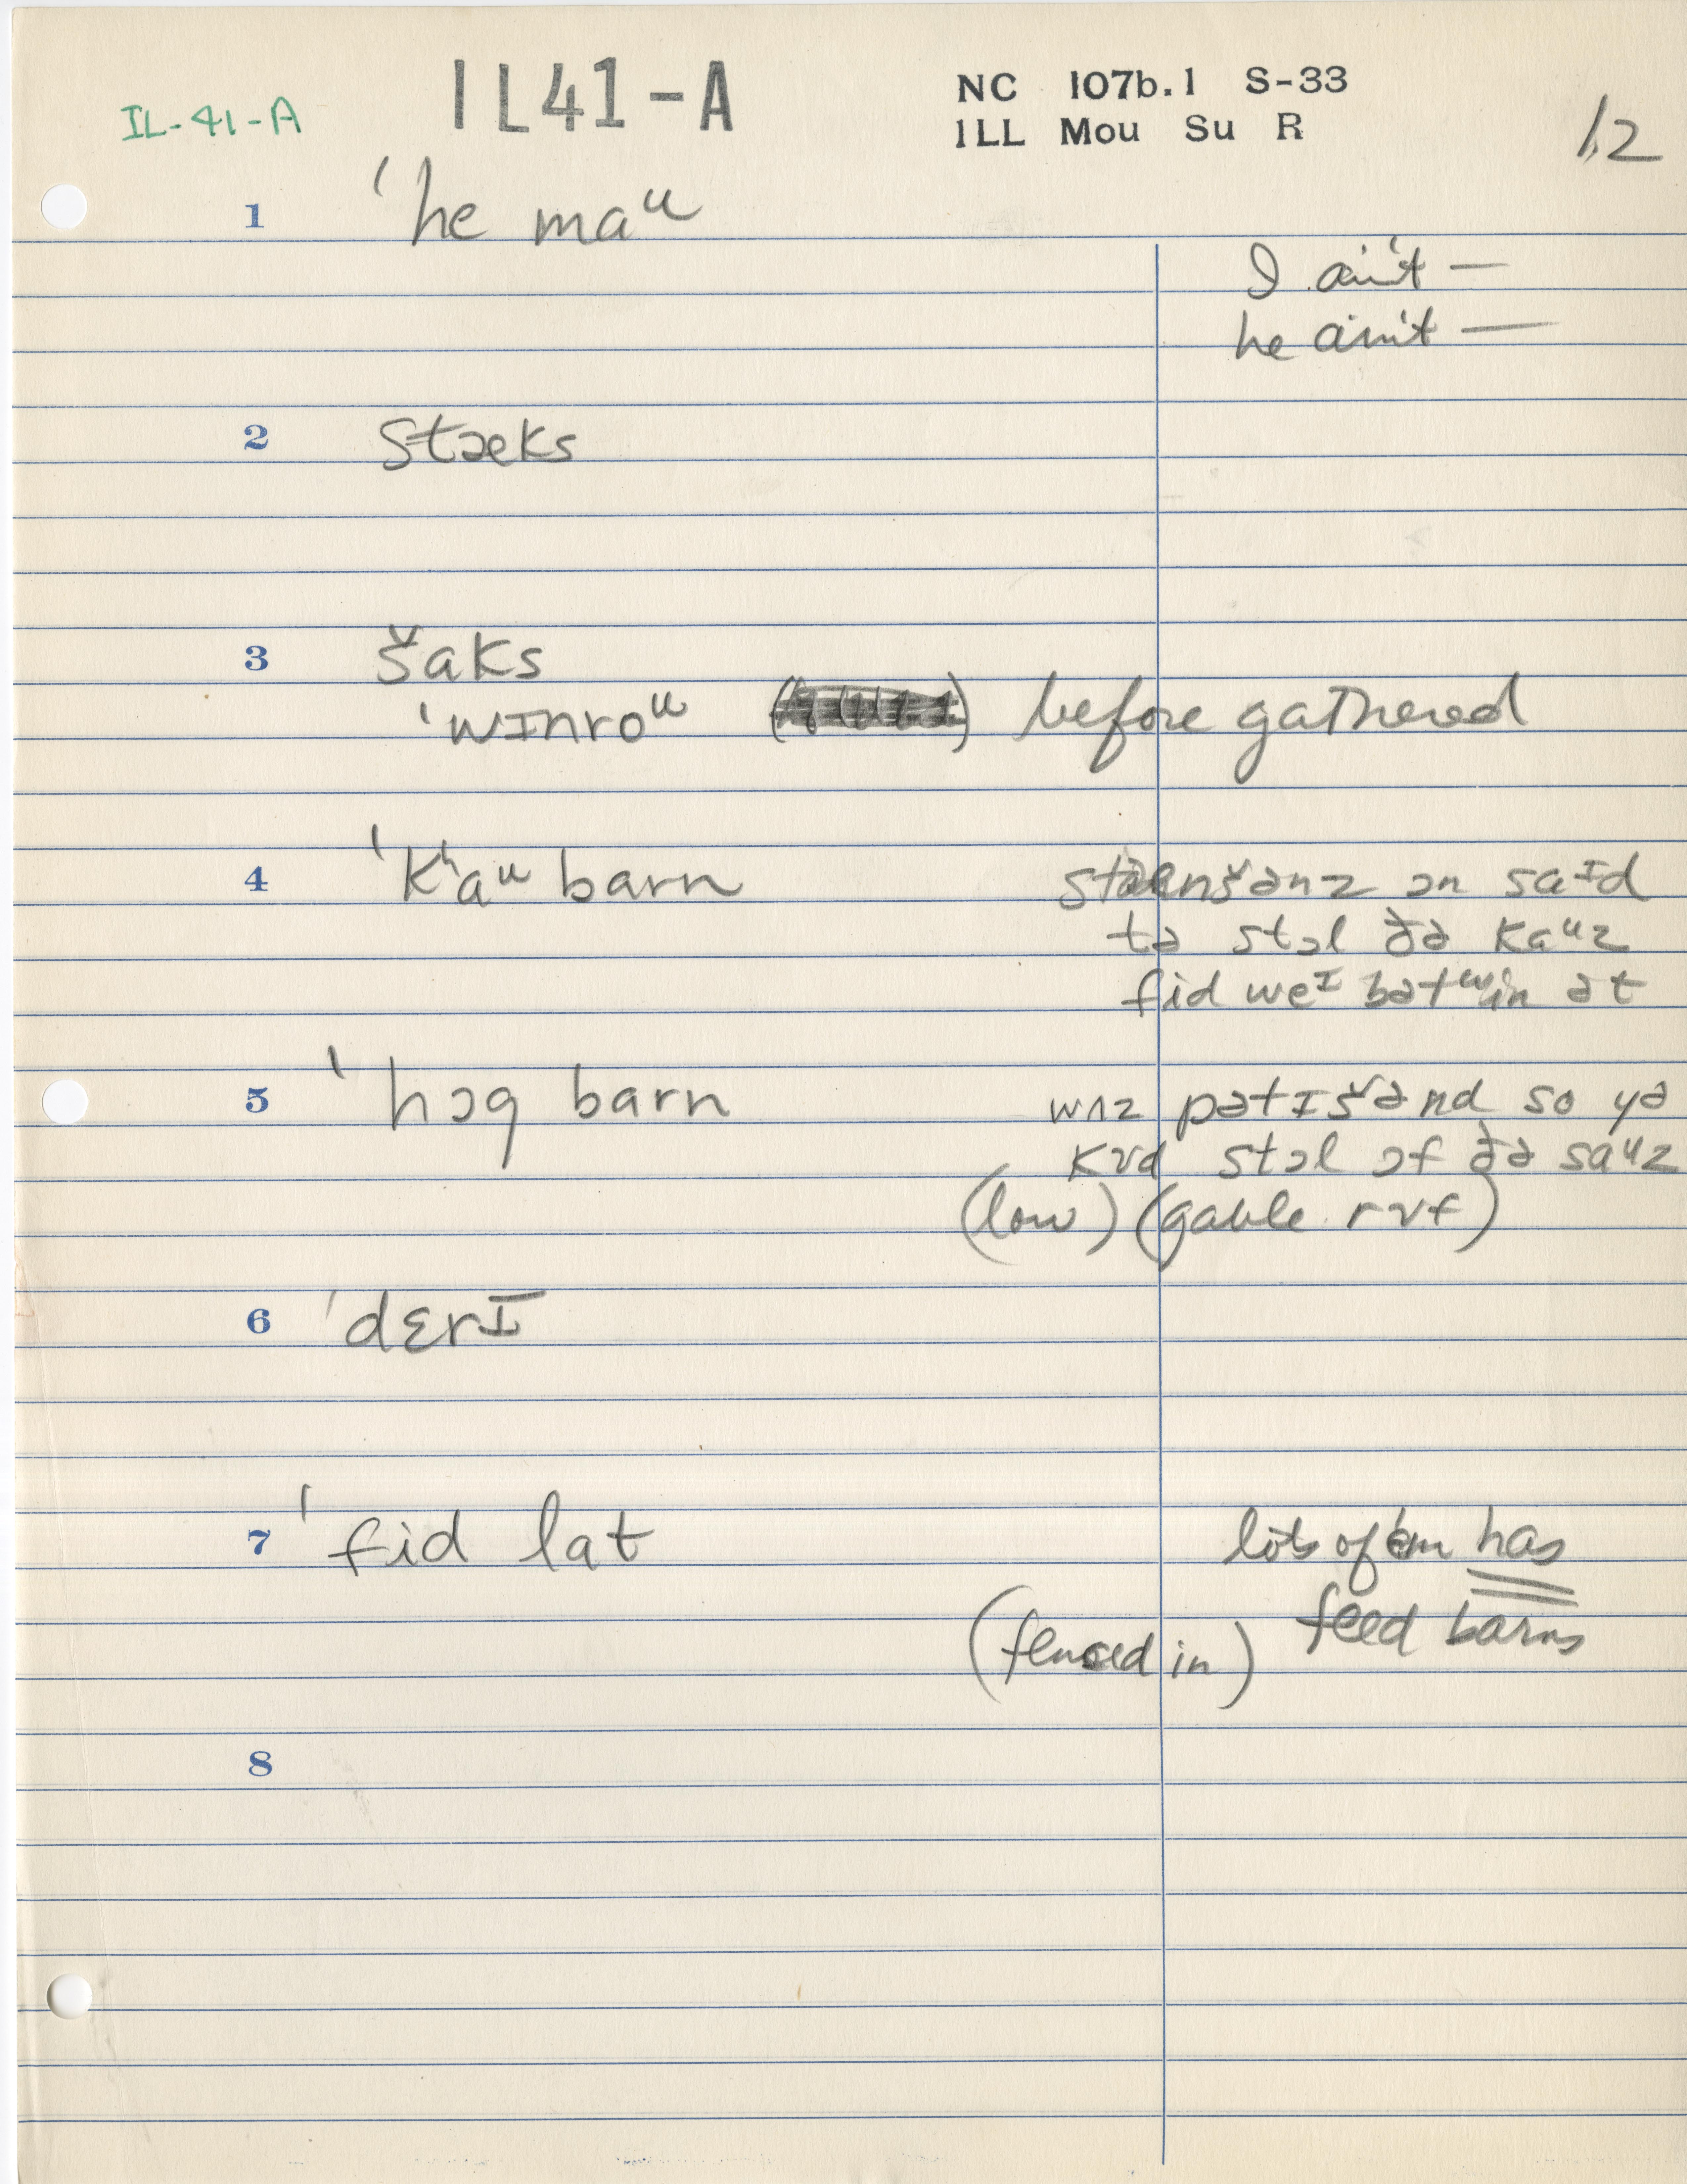 IL-41-A
IL41-A
NC 107b.1 S-33
ILL Mou Su R
12
1 ˈhe maᵘ
I ain't —
he ain't —
2 stæks
3 šaks
ˈwɪnroᵘ before gathered
4 ˈkʰaᵘ barn
stænšənz ɔn saᶦd
tə stɔl ðə kaᵘz
fid weᶦ bətwin ət
5 ˈhɔg barn
wʌz pətɪšənd so yə
kʊd stɔl ɔf ðə saᵘz
(low) (gable rʊf)
6 ˈdɛrɪ
7 ˈfid lat
lots of 'em has
feed barns
(fenced in)
8